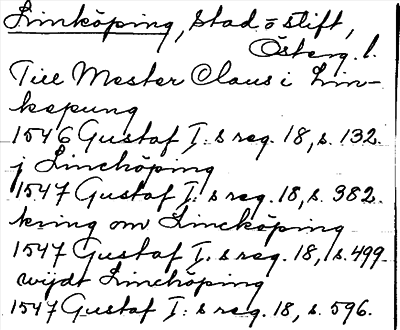 Linköping, stad o stift,
Österg. l.
Till Mester Claus i Lin-
kepung
1546 Gustaf I: s reg. 18, s. 132.
j Linchöping
1547 Gustaf I: s reg. 18, s. 382.
kring om Lincköping
1547 Gustaf I. s reg. 18, s. 499.
wijdt Linchöping
1547 Gustaf I: s reg. 18, s. 596.